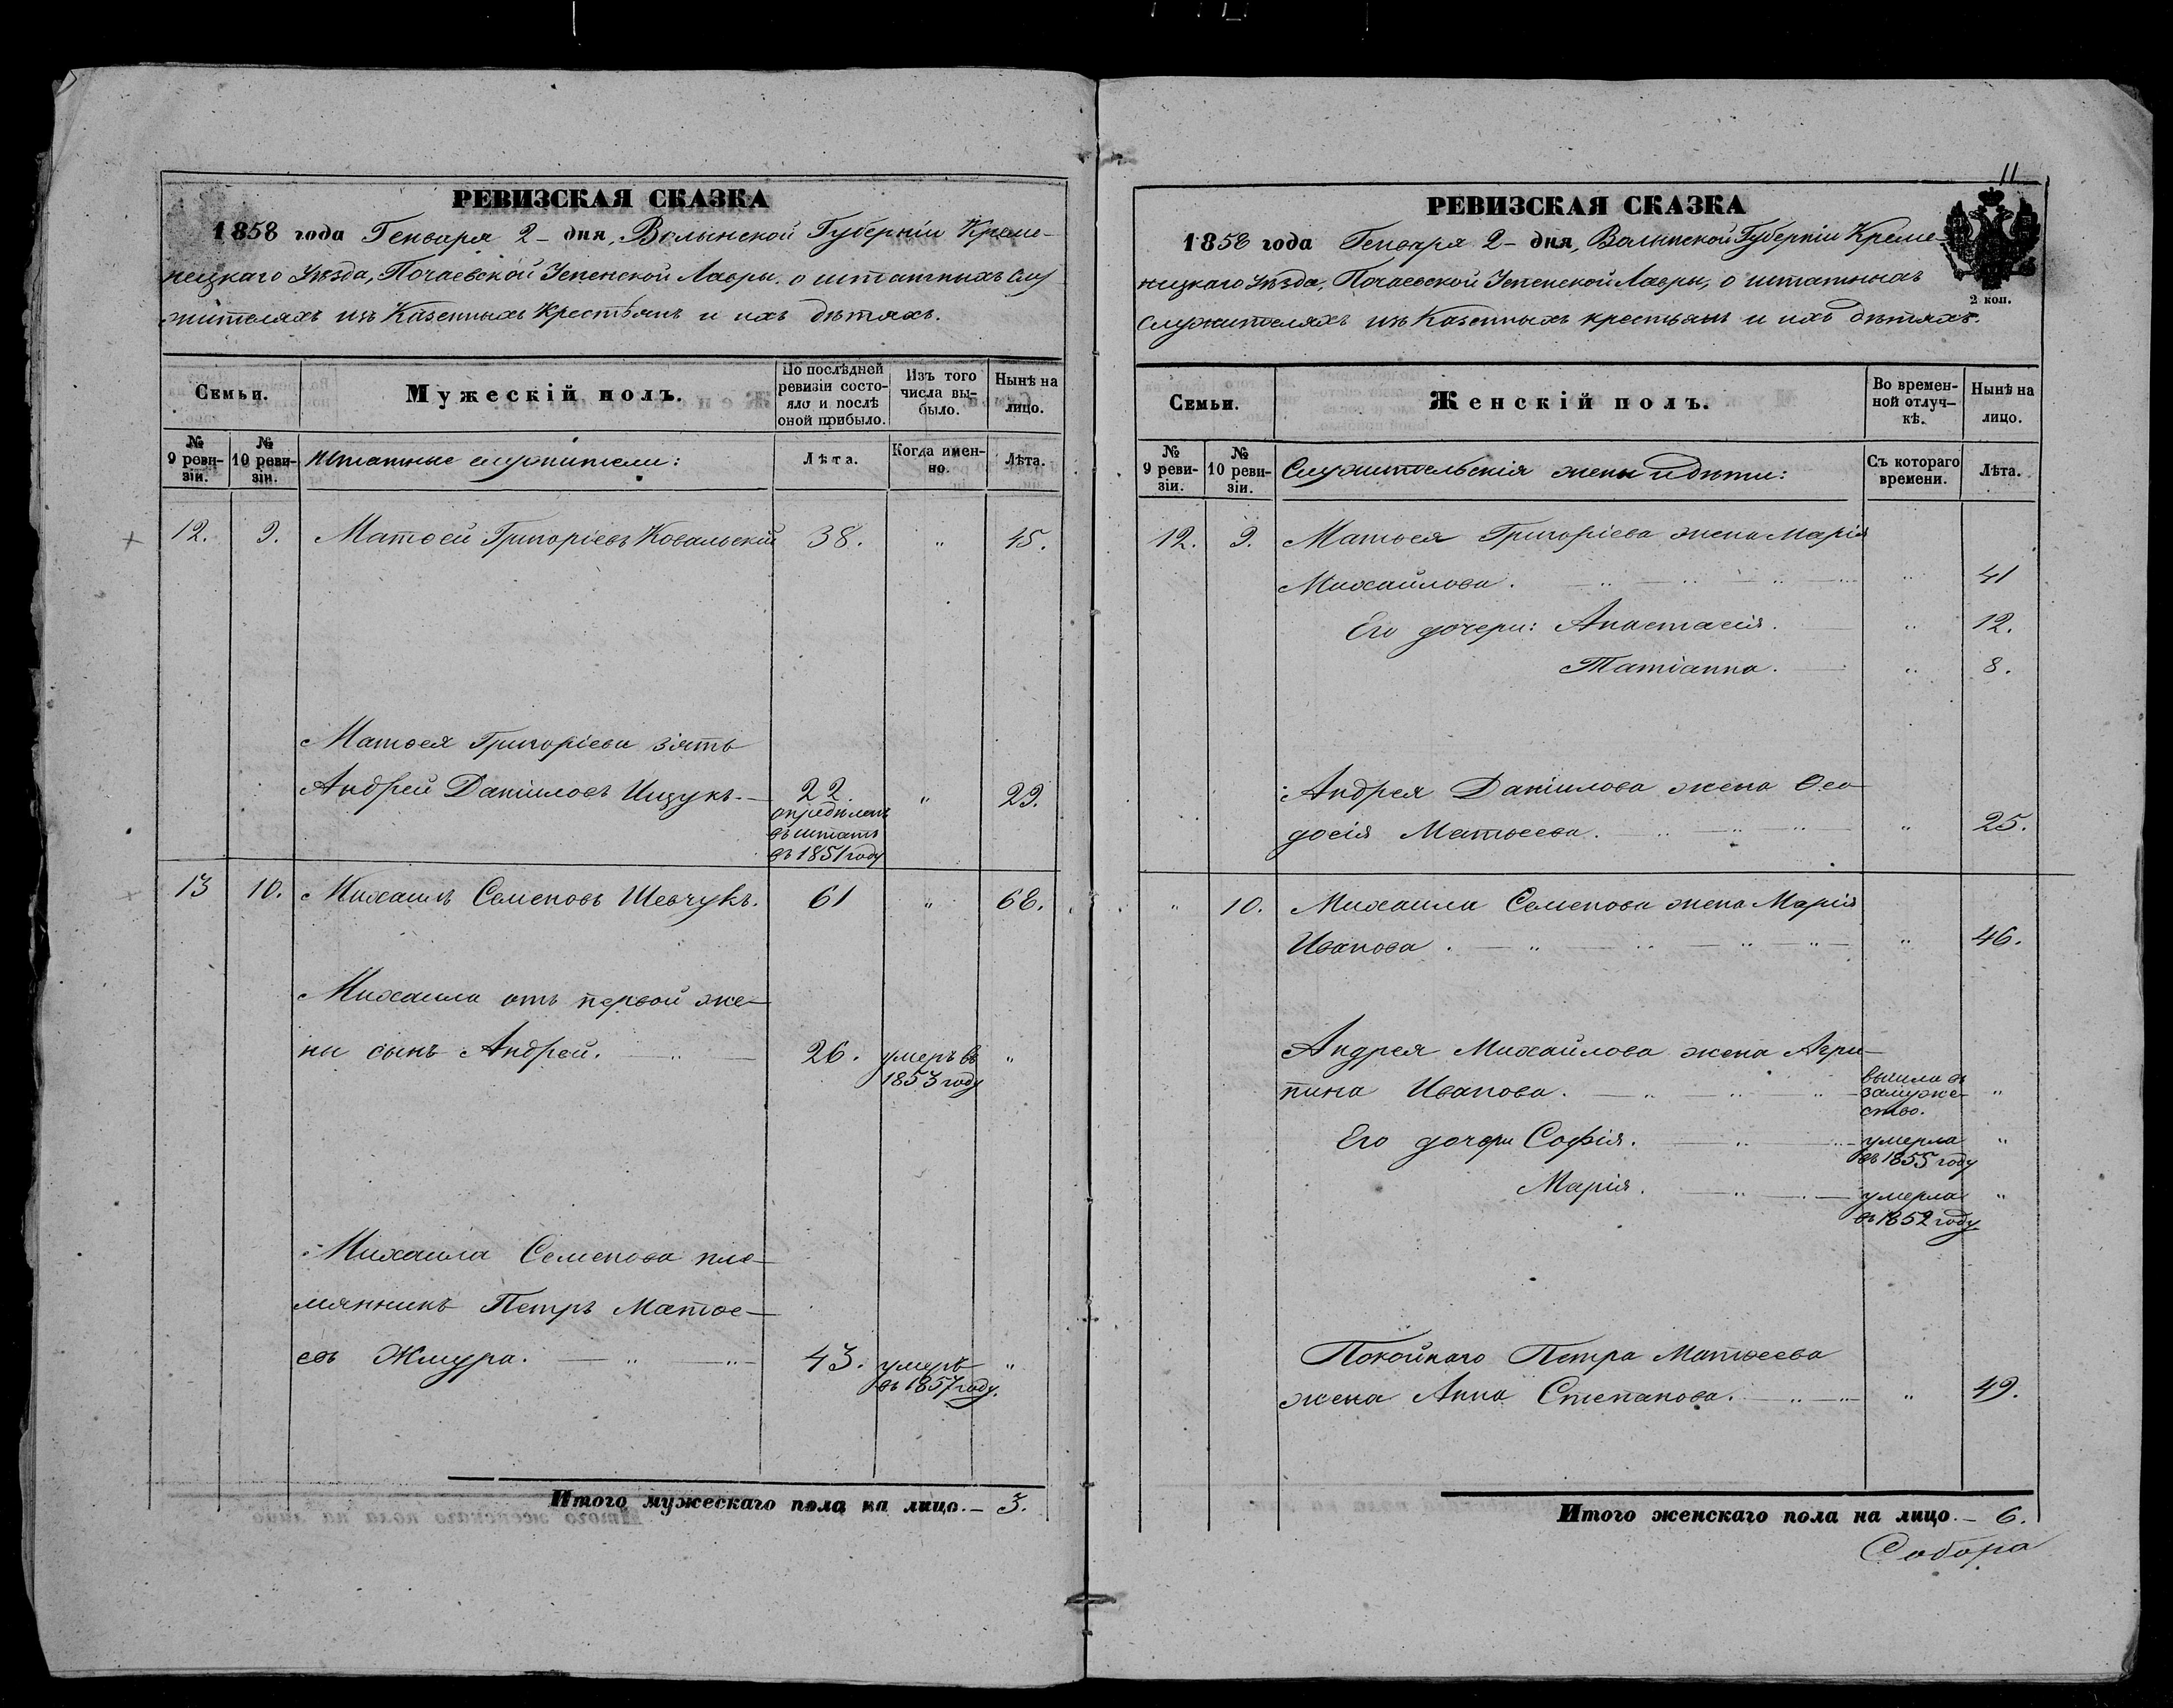 РЕВИЗСКАЯ СКАЗКА
1858 года Генваря 2 - дня, Волынской Губерніи Креме-
нецкаго Уѣзда, Почаевской Успенской Лавры, о штатныхъ слу
жителяхъ изъ Казенныхъ Крестьянъ и ихъ дѣтяхъ.
Семьи.
Мужескій полъ.
По послѣдней
ревизіи состо-
яло и послѣ
оной прибыло.
Изъ того
числа вы-
было.
Нынѣ на
лицо.
№
9 реви-
зіи.
№
10 реви-
зіи.
Штатные служители:
Лѣта.
Когда имен-
но.
Лѣта.
12. 9. Матѳей Григоріевъ Ковальскій 38. " 45.
Матѳея Григоріева зять
Андрей Даніиловъ Ищукъ. - 22 " 29.
опредѣленъ
въ штатъ
въ 1851 году
13 10. Михаилъ Семеновъ Шевчукъ. 61 " 68.
Михаила отъ первой же-
ны сынъ Андрей. 26. умеръ въ "
1853 году
Михаила Семенова пле-
мянникъ Петръ Матѳе-
евъ Жмура. 43. умеръ "
въ 1857 году.
Итого мужескаго пола на лицо. - 3.
11
РЕВИЗСКАЯ СКАЗКА
1858 года Генваря 2 - дня, Волынской Губерніи Креме-
нецкаго Уѣзда, Почаевской Успенской Лавры, о штатныхъ
2 коп.
служителяхъ изъ Казенныхъ крестьянъ и ихъ дѣтяхъ.
Семьи.
Женскій полъ.
Во времен-
ной отлуч-
кѣ.
Нынѣ на
лицо.
№
9 реви-
зіи.
№
10 реви-
зіи.
Служительскія жены и дѣти:
Съ котораго
времени.
Лѣта.
12. 9. Матѳея Григоріева жена Марія
Михайлова. " 41
Его дочери: Анастасія. " 12.
Татіанна. " 8.
Андрея Даніилова жена Ѳео
досія Матѳеева. " 25.
" 10. Михаила Семенова жена Марія
Иванова. " 46.
Андрея Михайлова жена Агри-
пина Иванова. вышла въ
замуже-
ство. "
Его дочери Софія. умерла "
въ 1855 году
Марія. умерла "
въ 1852 году
Покойнаго Петра Матѳеева
жена Анна Степанова. " 49.
Итого женскаго пола на лицо. - 6.
Собора